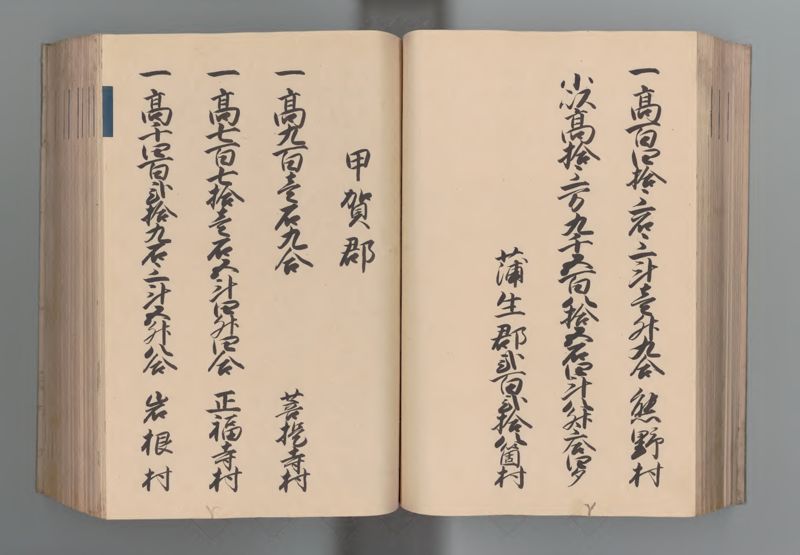 一高百四拾六石三斗壱升九合 熊野村
小以高拾三万九千五百八拾五石四斗八升六合四夕
蒲生郡弐百弐拾八箇村
甲賀郡
一高九百壱石九合 菩提寺村
一高七百七拾壱石五斗四升四合 正福寺村
一高千四百弐拾九石三斗五升八合 岩根村